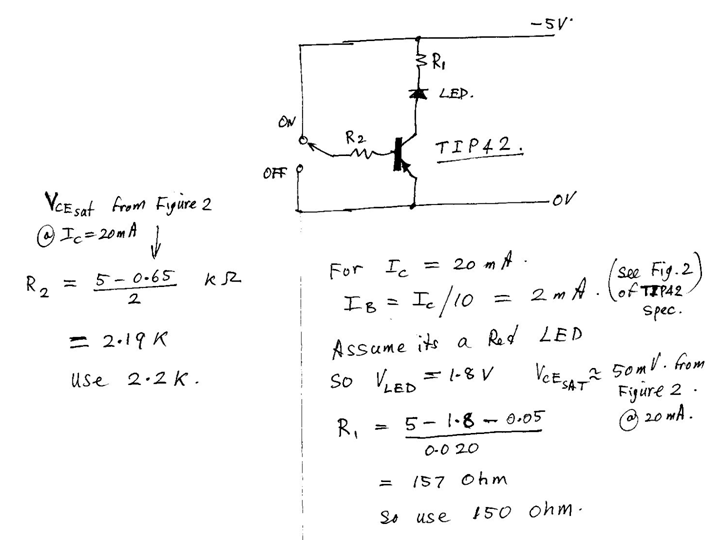 -5V.
R1
LED.
ON
R2
TIP42.
OFF
0V
VCEsat from Figure 2
@ IC = 20mA
R2 = 5 - 0.65 / 2 kΩ
= 2.19 K
use 2.2K.
For IC = 20 mA.
IB = IC/10 = 2 mA. (see Fig. 2 of TIP42 spec.)
Assume its a Red LED
so VLED = 1.8 V VCESAT ≈ 50mV. from Figure 2. @ 20 mA.
R1 = 5 - 1.8 - 0.05 / 0.020
= 157 Ohm
So use 150 ohm.